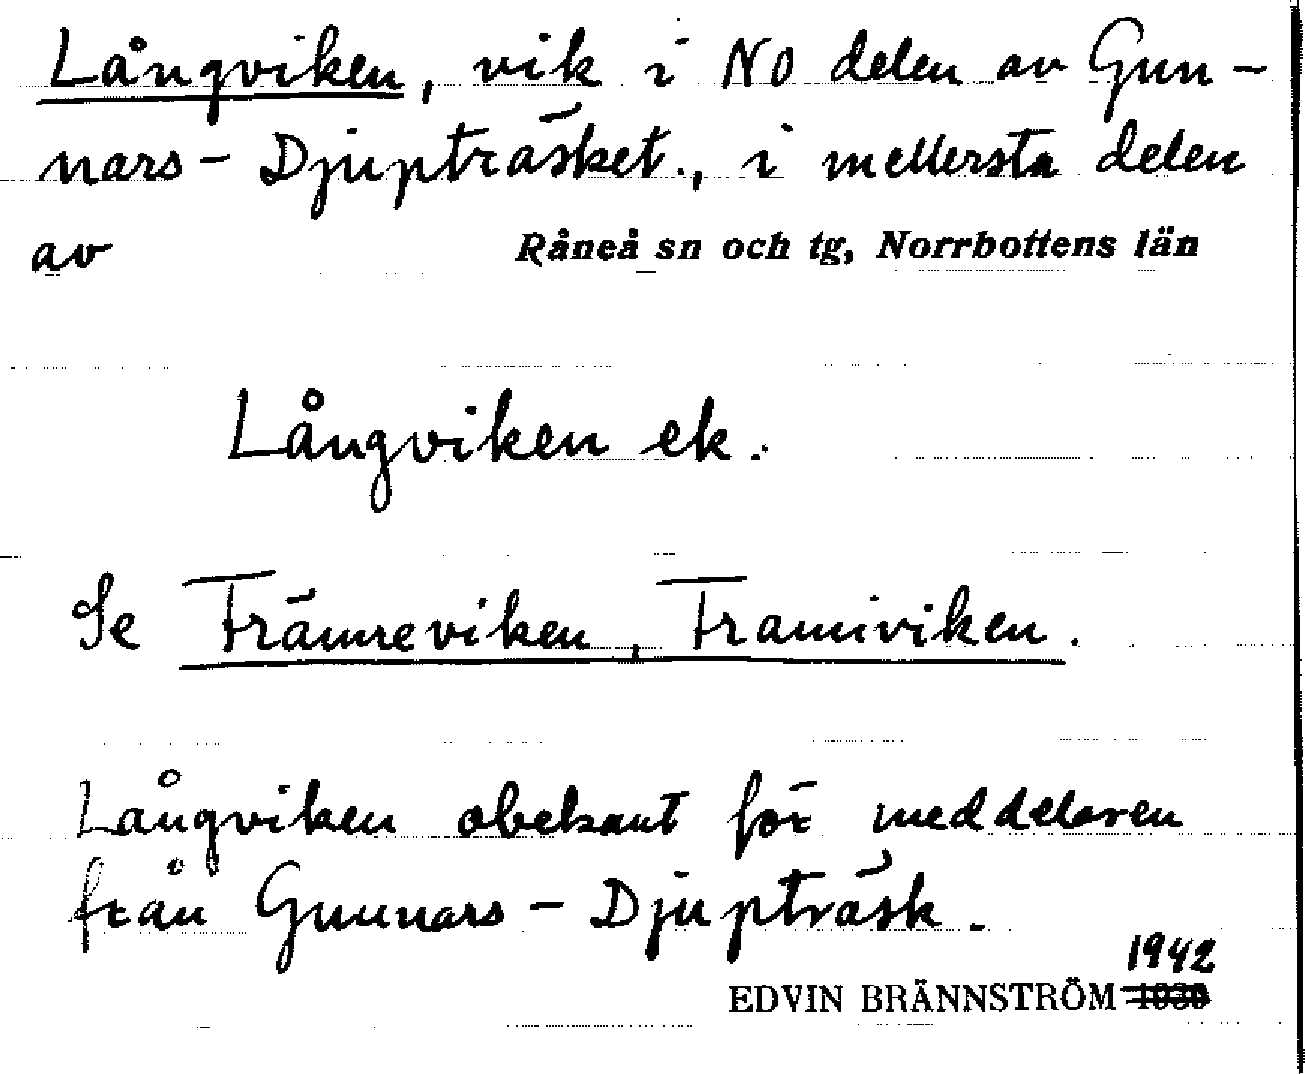 Långviken, vik i NO delen av Gun-
nars-Djupträsket., i mellersta delen
av Råneå sn och tg, Norrbottens län
Långviken ek.
Se Främreviken, Framiviken.
Långviken obekant för meddelaren
från Gunnars-Djupträsk.
1942
EDVIN BRÄNNSTRÖM